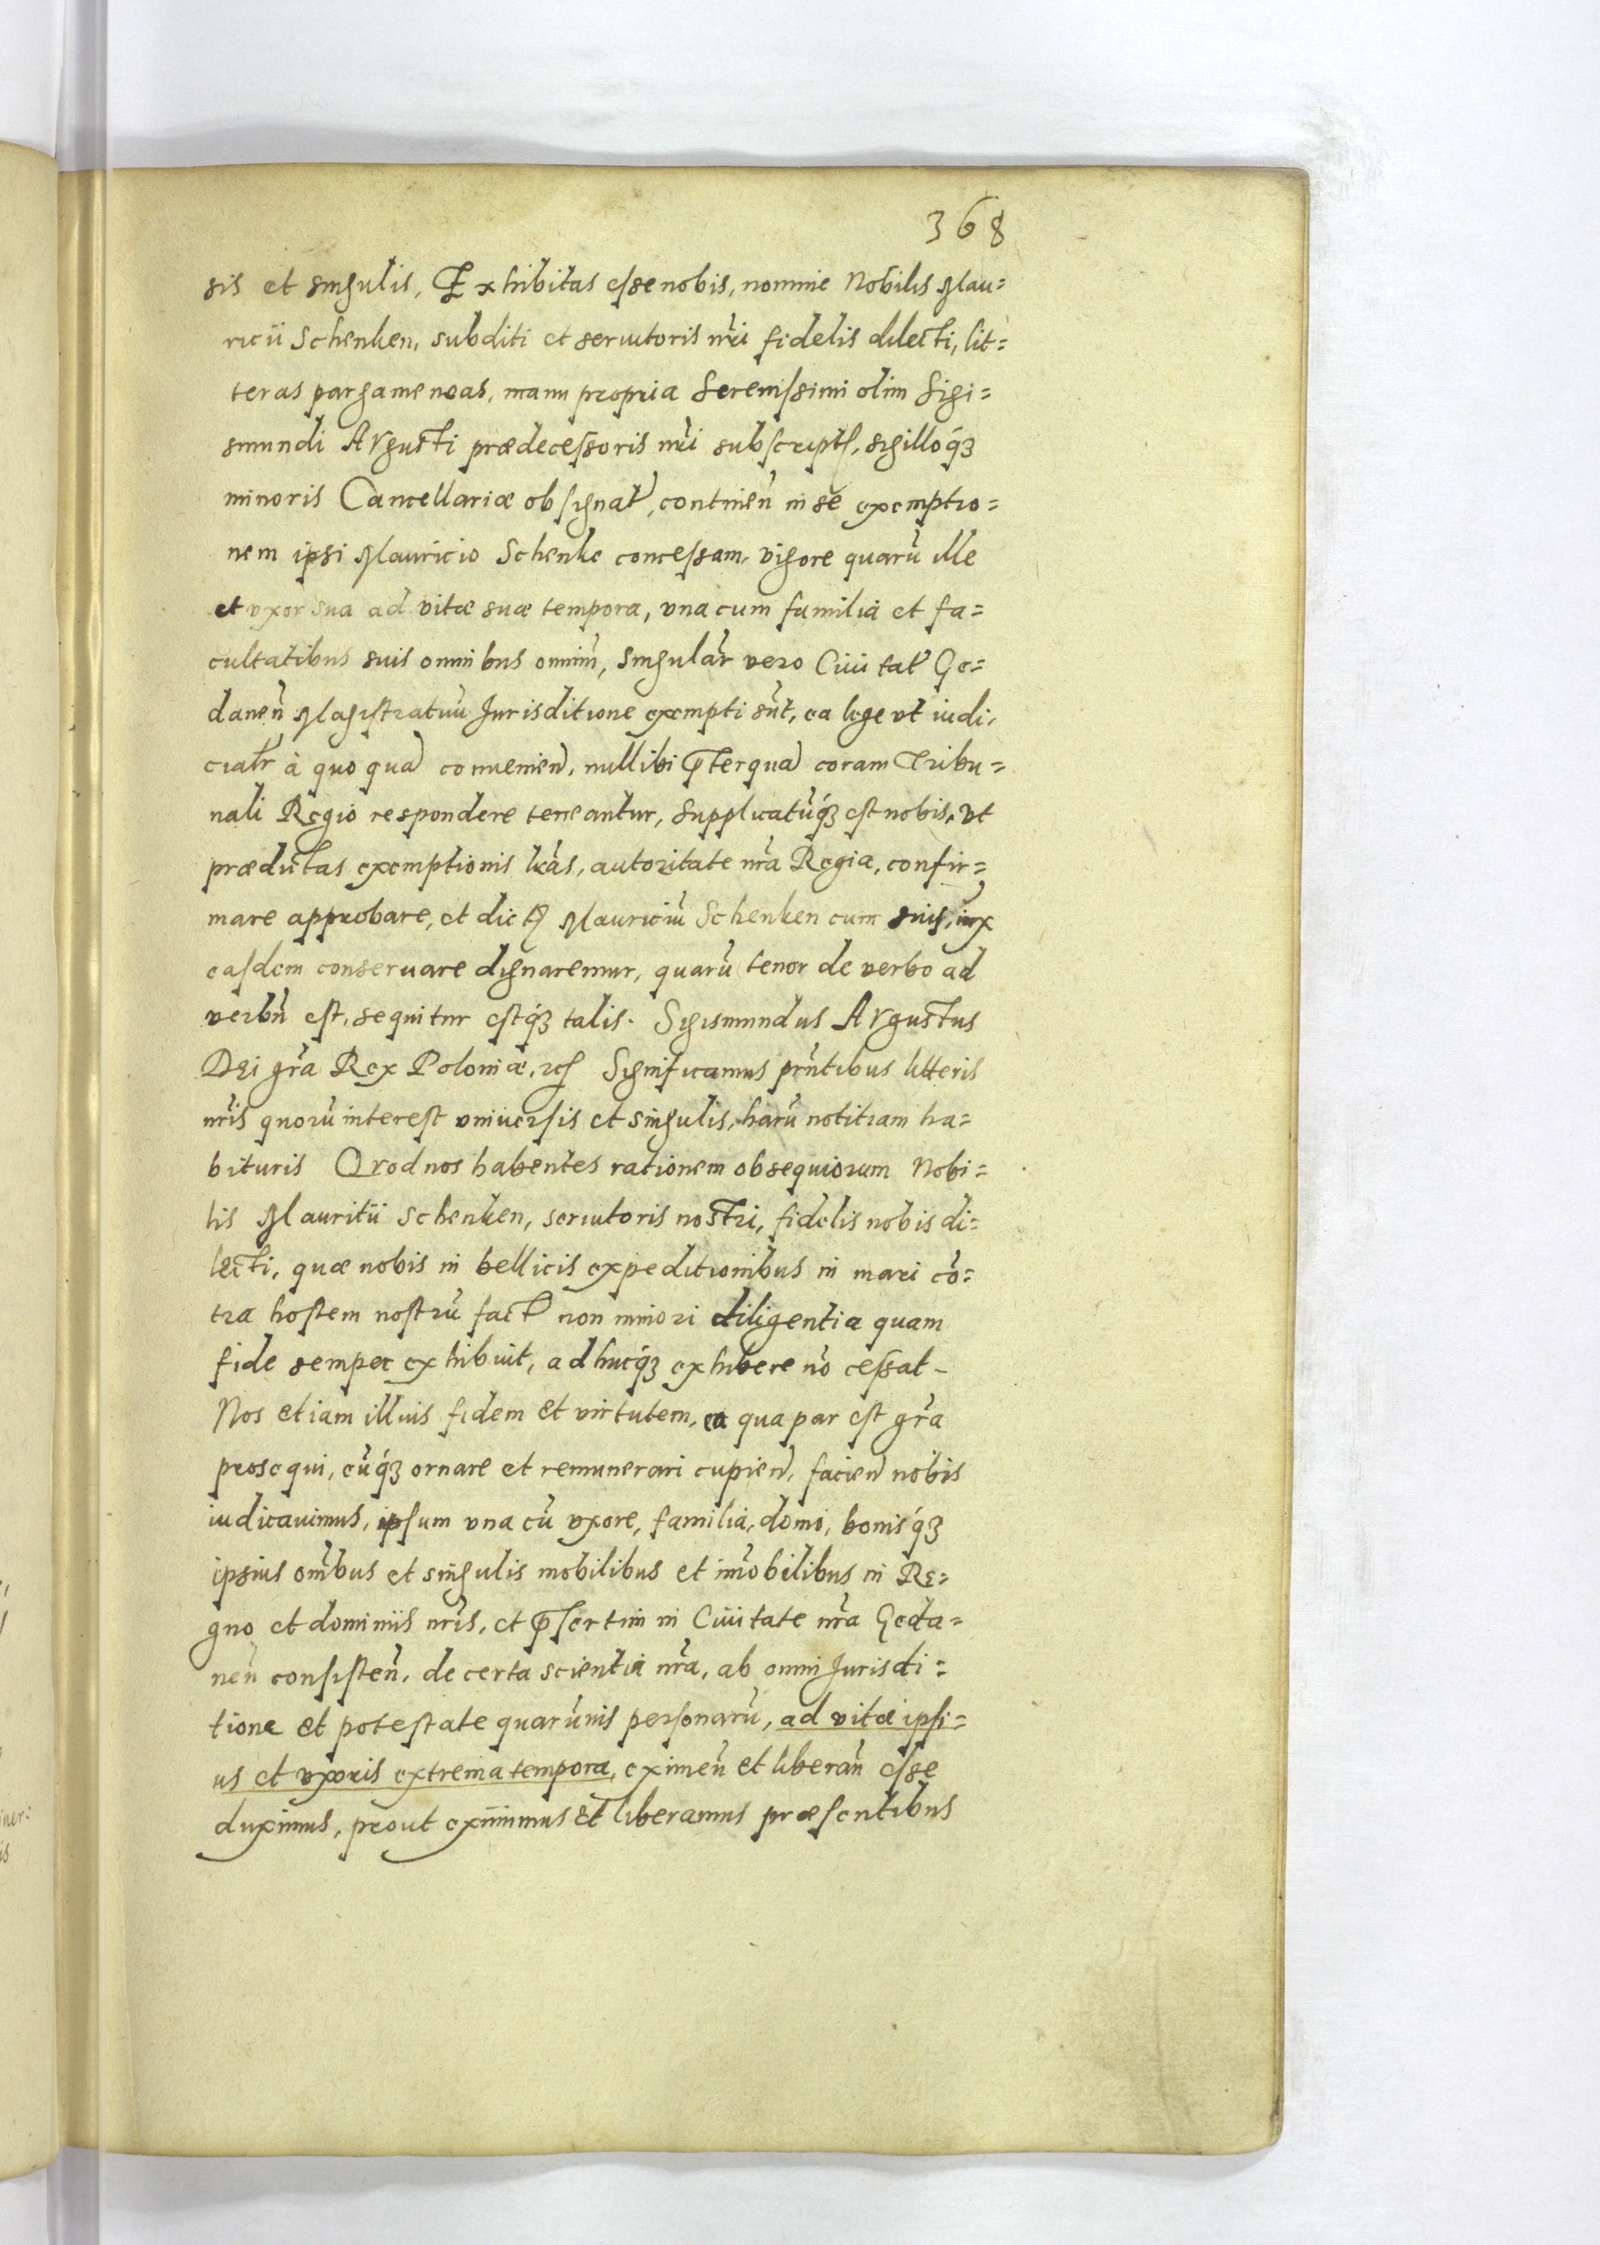 368
sis et singulis, Exhibitas esse nobis, nomine Nobilis Mau=
ricii Schenken, subditi et seruitoris nr̃i fidelis dilecti, lit=
teras pargameneas, manu propria Serenissimi olim Sigi=
smundi Augusti prædecessoris nr̃i subscript, sigilloq́ꝫ
minoris Cancellariæ obsignat, continen̄ in se exemptio=
nem ipsi Mauricio Schenke concessam, vigore quarū ille
et vxor sua ad vitæ suæ tempora, vna cum familia et fa=
cultatibus suis omnibus omnim̃, singular̃ vero Ciuitat Ge=
danen̄ Magistratuū Jurisditione exempti sūt, ea lege vt iudi,
cialr̃ à quoquā conuenien, nullibi p̱terquā coram Tribu=
nali Regio respondere teneantur, Supplicatūq́ꝫ est nobis, vt
prædictas exemptionis lr̃as, autoritate nr̃a Regia, confir=
mare approbare, et dict Mauriciū Schenken cum suis, iux
easdem conseruare dignaremur, quarū tenor de verbo ad
verbū est, sequitur estq́ꝫ talis. Sigismundus Augustus
Dei gr̃a Rex Poloniæ, Significamus pn̄tibus litteris
nr̃is quorū interest vniuersis et singulis, harū notitiam ha=
bituris Quod nos habentes rationem obsequiorum Nobi=
lis Mauritii Schenken, seruitoris nostri, fidelis nobis di=
lecti, quæ nobis in bellicis expeditionibus in mari cō=
tra hostem nostrū fact non minori diligentia quam
fide semper exhibuit, adhucq́ꝫ exhibere nō cessat _
Nos etiam illius fidem et virtutem, ea qua par est gr̃a
prosequi, eūq́ꝫ ornare et remunerari cupien, facien nobis
iudicauimus, ipsum vna cū vxore, familia, domo, bonisq́ꝫ
ipsius om̃bus et singulis mobilibus et im̃obilibus in Re=
gno et dominiis nr̃is, et p̱sertim in Ciuitate nr̃a Geda=
nen̄ consisten̄, de certa scientia nr̃a, ab omni Jurisdi=
tione et potestate quarūuis personarū, ad vitæ ipsi=
us et vxoris extrema tempora, eximen̄ et liberan̄ esse
duximus, prout eximimus et liberamus præsentibus